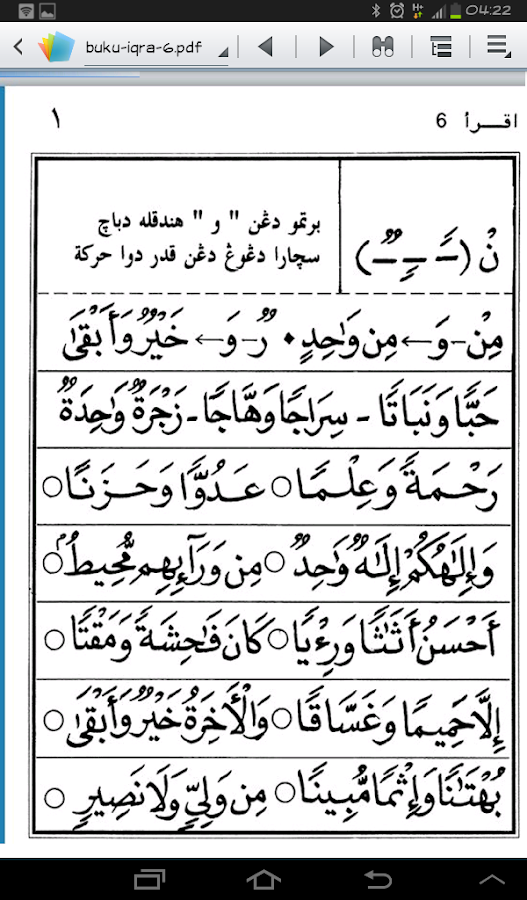 04:22
buku-iqra-6.pdf
اقــرأ 6 ١
نْ (ــًــٍــٌــ) برتمو دڠن " و " هندقله دباچ
سچارا دڠوڠ دڠن قدر دوا حركة
مِنْ-وَ←مِن وَٰحِدٍ • رٌ-وَ←خَيْرٌ وَأَبْقَىٰ
حَبًّا وَنَبَاتًا - سِرَاجًا وَهَّاجًا - زَجْرَةٌ وَٰحِدَةٌ
رَحْمَةً وَعِلْمًا ○ عَدُوًّا وَحَزَنًا ○
وَإِلَـٰهُكُمْ إِلَـٰهٌ وَٰحِدٌ ○ مِن وَرَآئِهِم مُّحِيطٌ ○
أَحْسَنُ أَثَـٰثًا وَرِءْيًا ○ كَانَ فَـٰحِشَةً وَمَقْتًا ○
إِلَّا حَمِيمًا وَغَسَّاقًا ○ وَالْأَخِرَةُ خَيْرٌ وَأَبْقَىٰ ○
بُهْتَـٰنًا وَإِثْمًا مُّبِينًا ○ مِن وَلِيٍّ وَلَا نَصِيرٍ ○